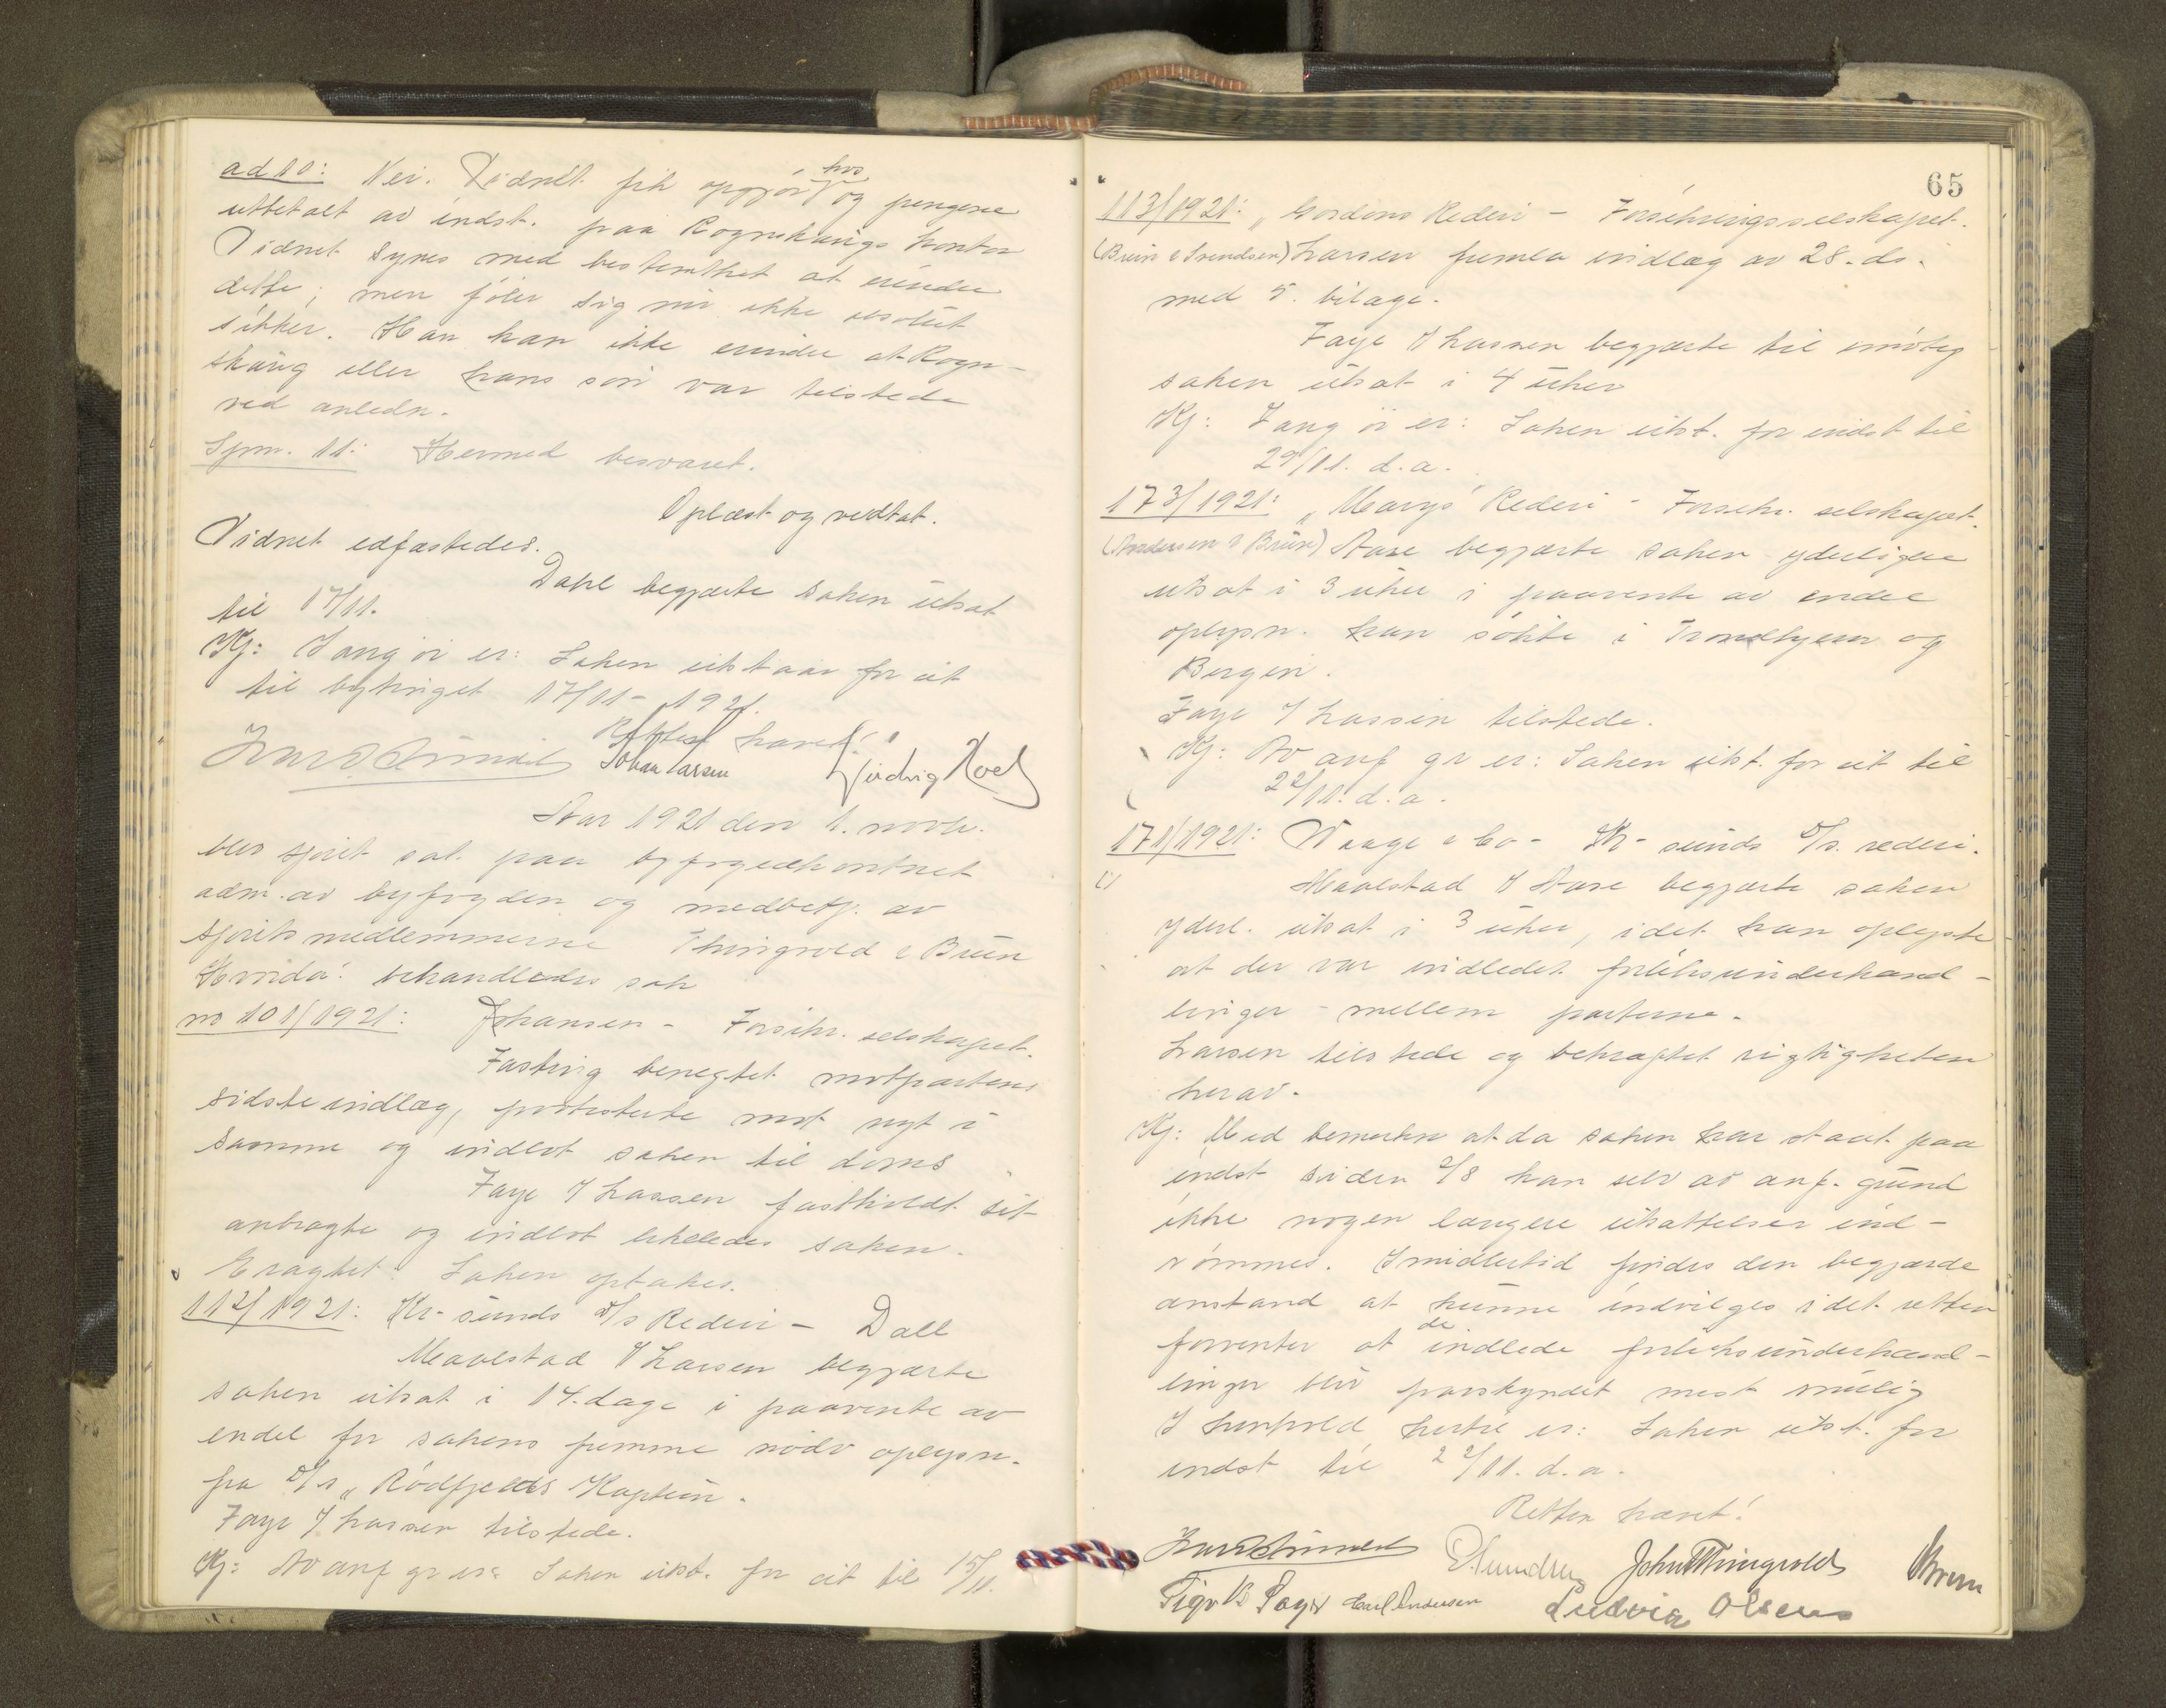 ad 10: Nei. Vidnet fik opgjör hos og pengene
utbetalt av indst. paa Rognskaugs kontor
Vidnet synes med bestemthet at erindre
dette; men föler sig nu ikke absolut
sikker. Han kan ikke erindre at Rogn-
skaug eller hans sön var tilstede
ved anledn.
Spm. 11: Hermed besvaret.
Oplæst og vedtat.
Vidnet edfæstedes.
Dahl begjærte saken utsat
til 17/11.
Kj: I ang. öi er: Saken utstaar for at
til bytinget 17/11 - 1921.
Retten hævet!
Johan Larsen Ludvig Hoel
Aar 1921 den 1. novbr.
blev sjöret sat paa byfogedkontoret
adm. av byfogden og medbetj. av
sjöretsmedlemmerne Thingvold & Bruun
Hvorda: behandledes sak
no 101/1921: Johansen - Forsikr. selskapet.
Fasting benegtet motpartens
sidste indlæg, protesterte mot nyt i
samme og indlot saken til doms
Faye f Larsen fastholdt sit
anbragte og indlot likeledes saken.
Eragtet: Saken optakes.
112/1921: Kr-sunds D/s Rederi - Dall
Maalstad f Larsen begjærte
saken utsat i 14. dage i paavente av
endel for sakens fremme nödv oplysn.
fra D/s "Rödfjelds Kaptein.
Faye f Larsen tilstede.
Kj: Av anf gr er: Saken utst. for at til 15/11.
65
113/1921: "Gordons Rederi - Forsikringsselskapet.
(Bruun & Svendsen) Larsen fremla indlæg av 28. ds.
med 5. bilage.
Faye f Larsen begjærte til imöteg
saken utsat i 4 uker
Kj: I ang öi er: Saken utst. for indst til
29/11. d.a.
173/1921: "Marys Rederi - Forsikr. selskapet.
(Andersen & Bruun) Aase begjærte saken yderligere
utsat i 3 uker i paavente av endel
oplysn. han sökte i Trondhjem og
Bergen.
Faye f Larsen tilstede.
Kj: Av anf gr er: Saken utst. for at til
22/11. d.a.
171/1921: Waage & Co - Kr-sunds D/s. rederi.
Maalstad f Aase begjærte saken
yderl. utsat i 3 uker, idet han oplyste
at der var indledet forliksunderhand-
linger - mellem parterne.
Larsen tilstede og bekræftet rigtigheten
herav.
Kj: Med bemerkn at da saken har staat paa
indst siden 2/8 kan selv av anf. grund
ikke nogen længere utsættelser ind-
römmes. Imidlertid findes den begjærde
anstand at kunne indvilges idet retten
forventer at de indlede forliksunderhand-
linger blir paaskyndet mest mulig
I henhold hertil er: Saken utst. for
indst til 22/11. d.a.
Retten hævet!
John Thingvold Bruun
Carl Andersen Ludvig Olsen